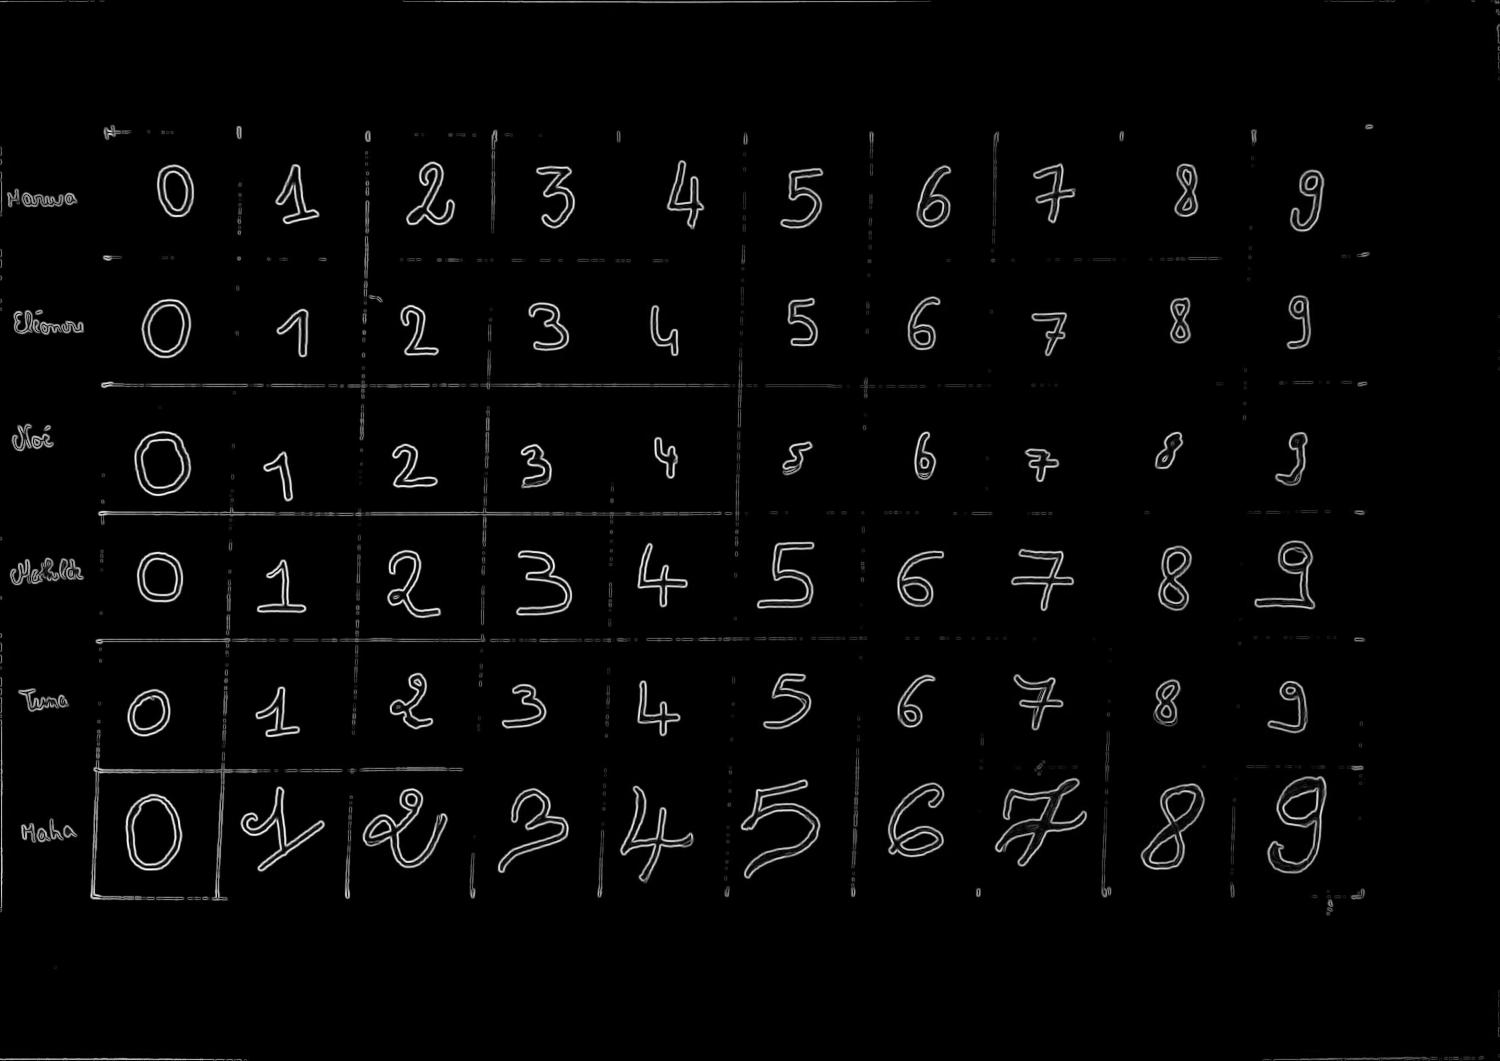 Marwa 0 1 2 3 4 5 6 7 8 9
Eléonore 0 1 2 3 4 5 6 7 8 9
Noé 0 1 2 3 4 5 6 7 8 9
Mathilde 0 1 2 3 4 5 6 7 8 9
Tuma 0 1 2 3 4 5 6 7 8 9
Maha 0 1 2 3 4 5 6 7 8 9